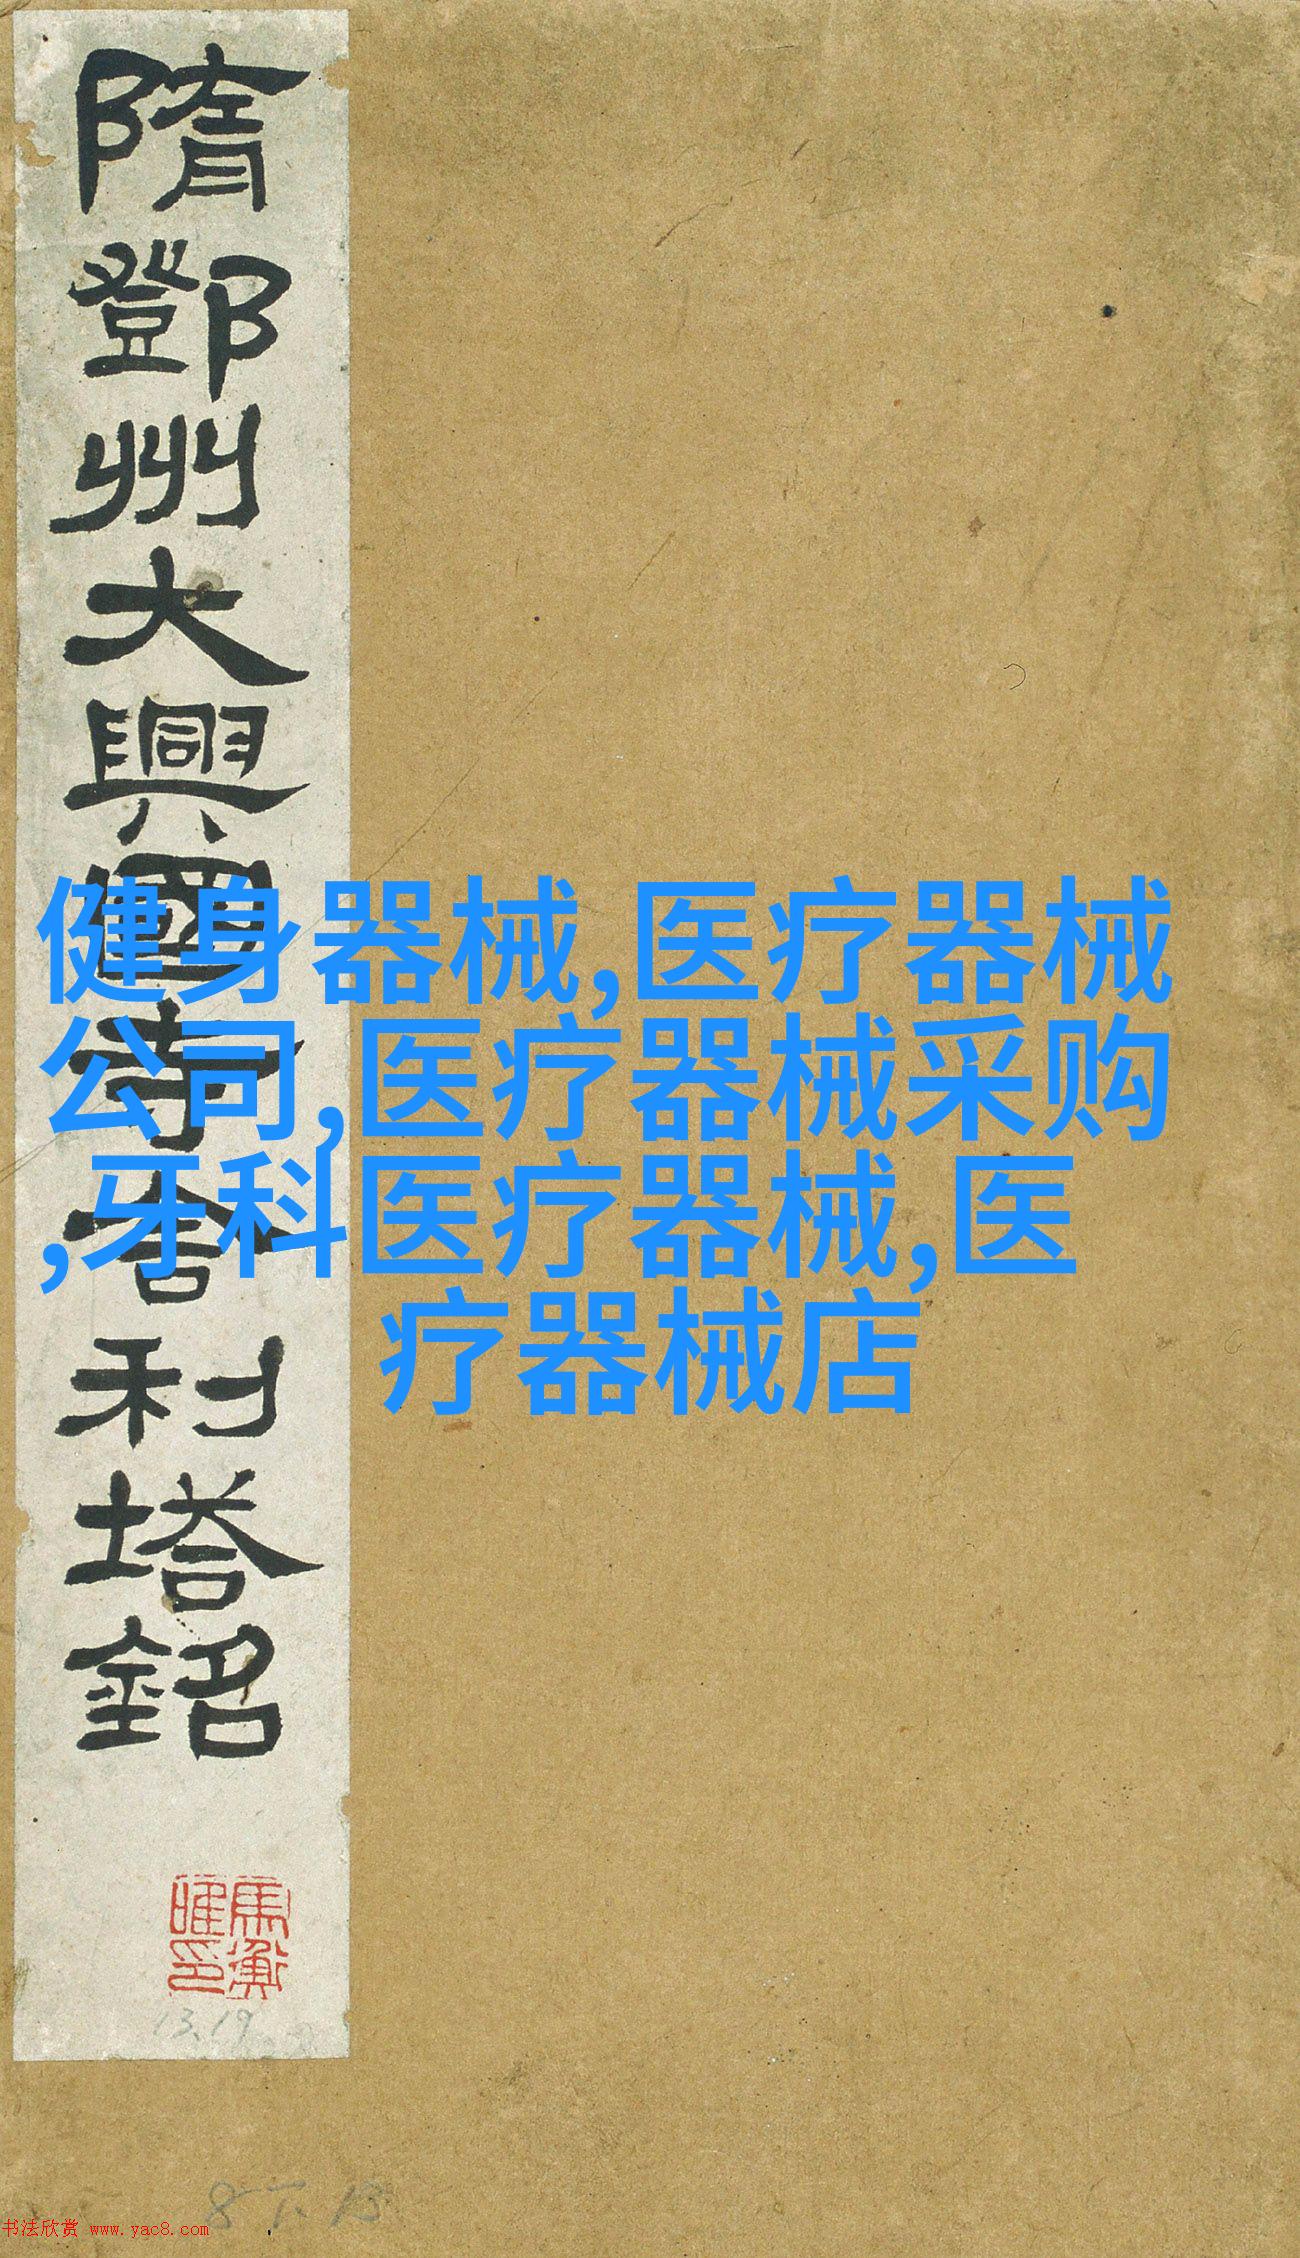 隋鄧州大興國寺舍利塔銘
健身器械,医疗器械
公司,医疗器械采购
,牙科医疗器械,医
疗器械店
馬衡
13.19
8下13
书法欣赏 www.yac8.com